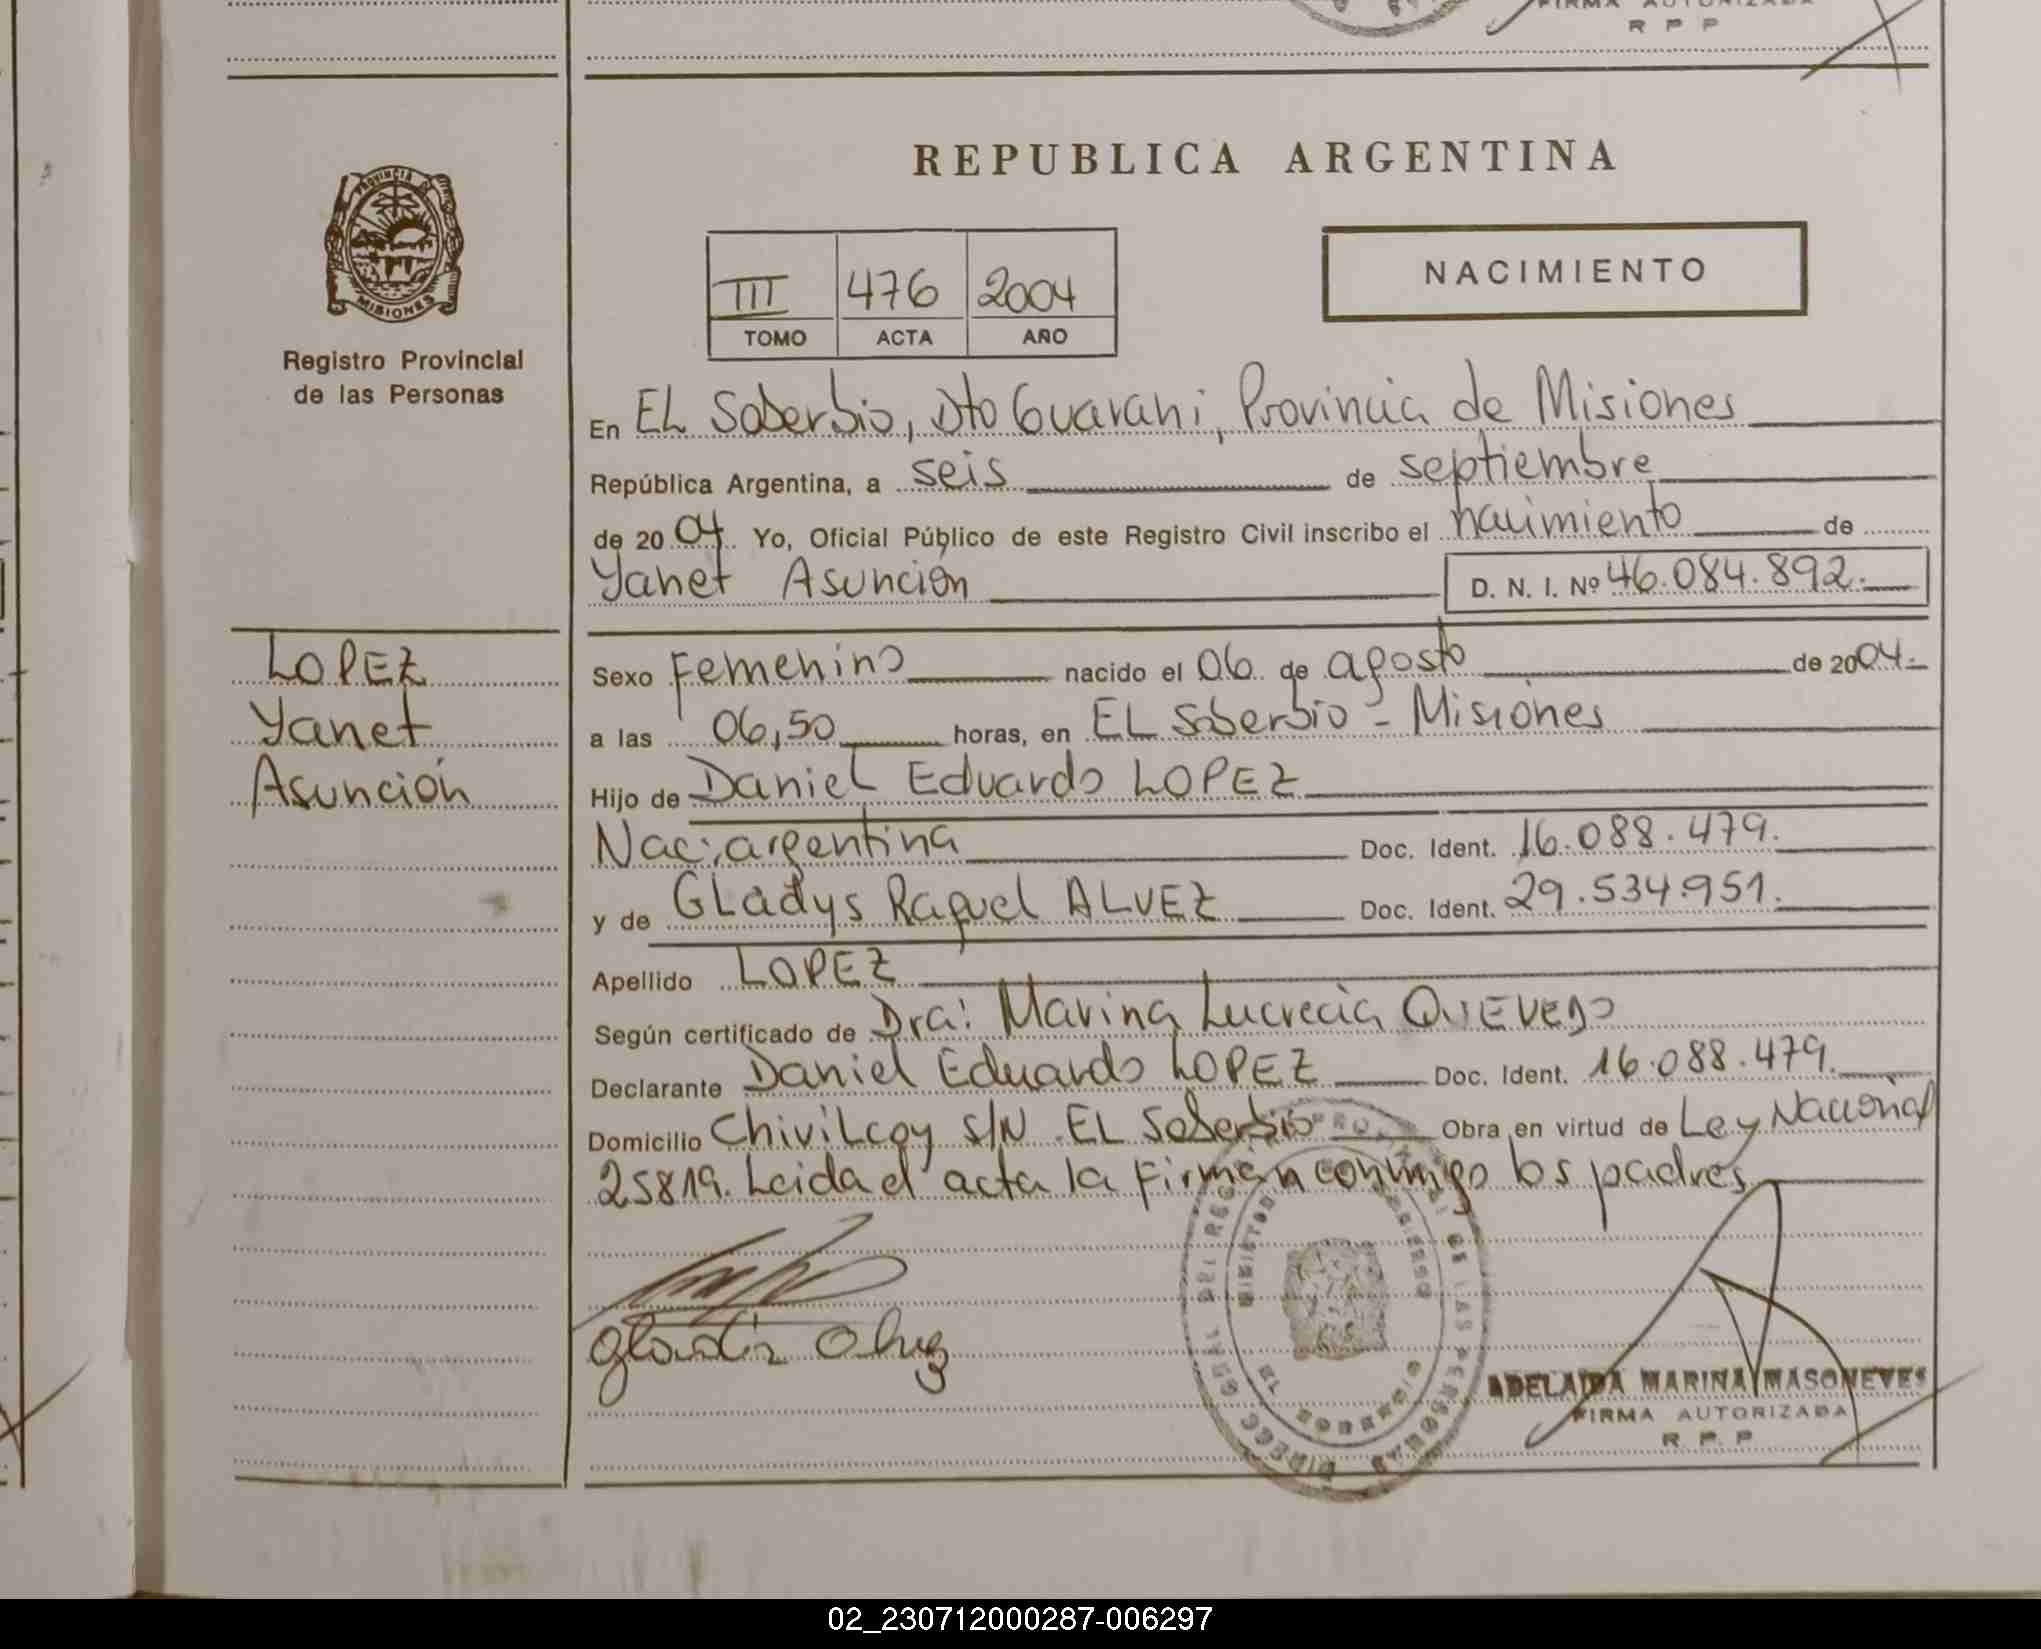 FIRMA AUTORIZADA
R P P
REPUBLICA ARGENTINA
PROVINCIA DE
MISIONES
Registro Provincial
de las Personas
III 476 2004
TOMO ACTA AÑO
NACIMIENTO
En EL Soberbio, Dto Guarani, Provincia de Misiones
República Argentina, a seis de septiembre
de 2004 Yo, Oficial Público de este Registro Civil inscribo el nacimiento de
Yanet Asunción D. N. I. Nº 46.084.892.
LOPEZ
Yanet
Asunción
Sexo Femenino nacido el 06 de agosto de 2004.
a las 06,50 horas, en EL Soberbio - Misiones
Hijo de Daniel Eduardo LOPEZ
Nac: argentina Doc. Ident. 16.088.479.
y de GLadys Raquel ALVEZ Doc. Ident. 29.534.951.
Apellido LOPEZ
Según certificado de Dra: Marina Lucrecia QUEVEDO
Declarante Daniel Eduardo LOPEZ Doc. Ident. 16.088.479.
Domicilio Chivilcoy S/N EL Soberbio Obra en virtud de Ley Nacional
25819. Leida el acta la firman conmigo los padres
ADELAIDA MARINA MASONEVES
FIRMA AUTORIZADA
R. P. P
02_230712000287-006297